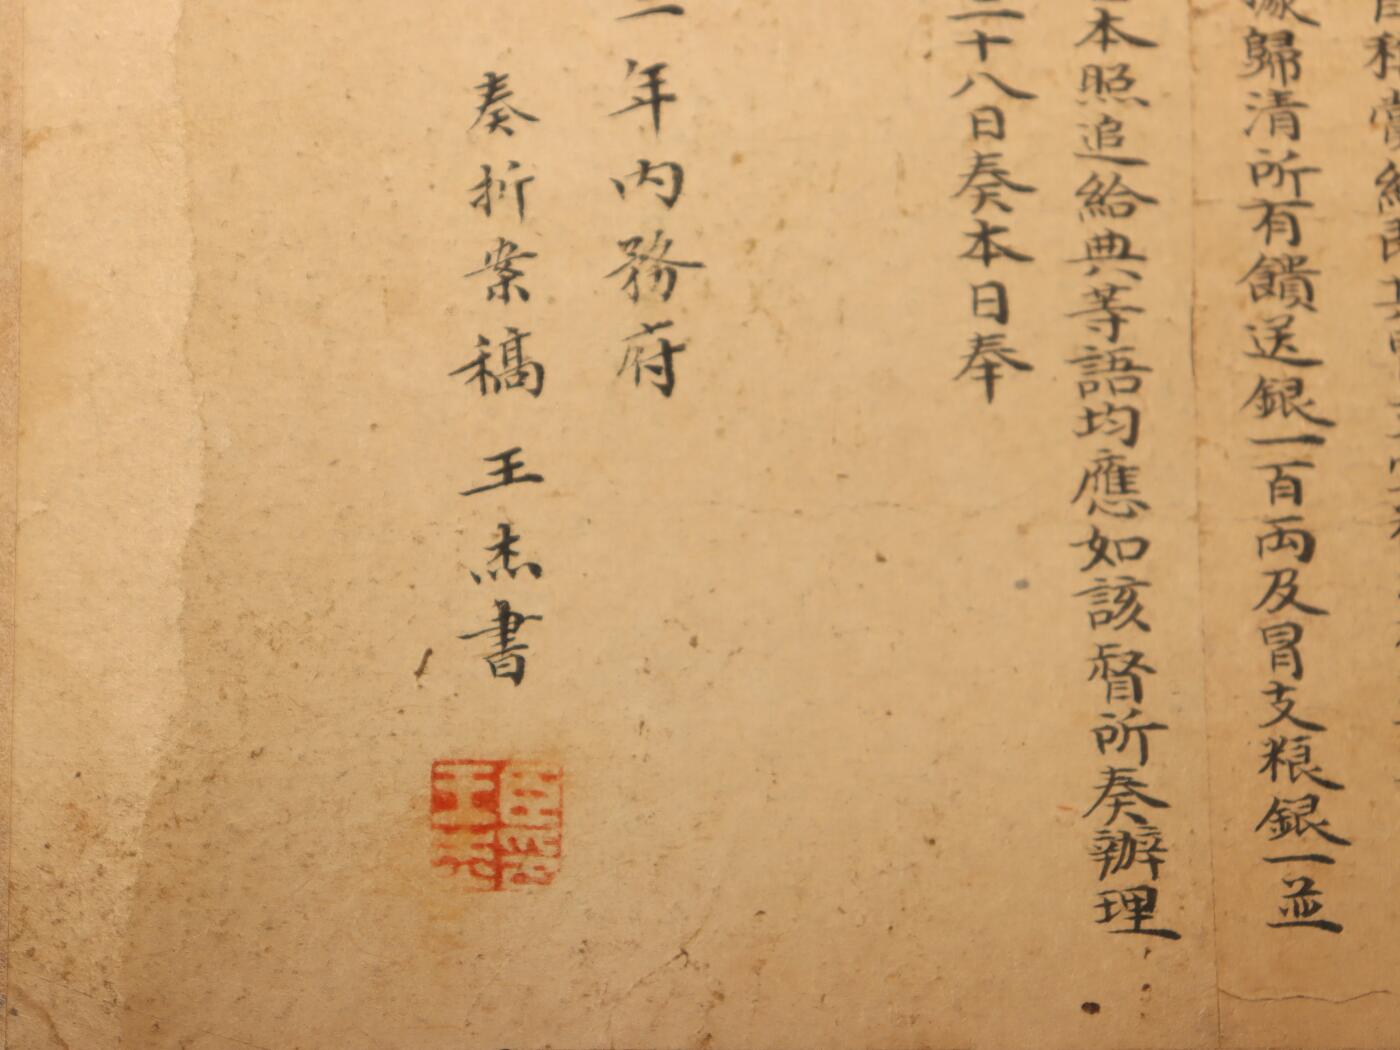 歸清所有餽送銀一百両及冒支粮銀一並
本照追給典等語均應如該督所奏辦理
二十八日奏本日奉
一年內務府
奏折案稿王杰書